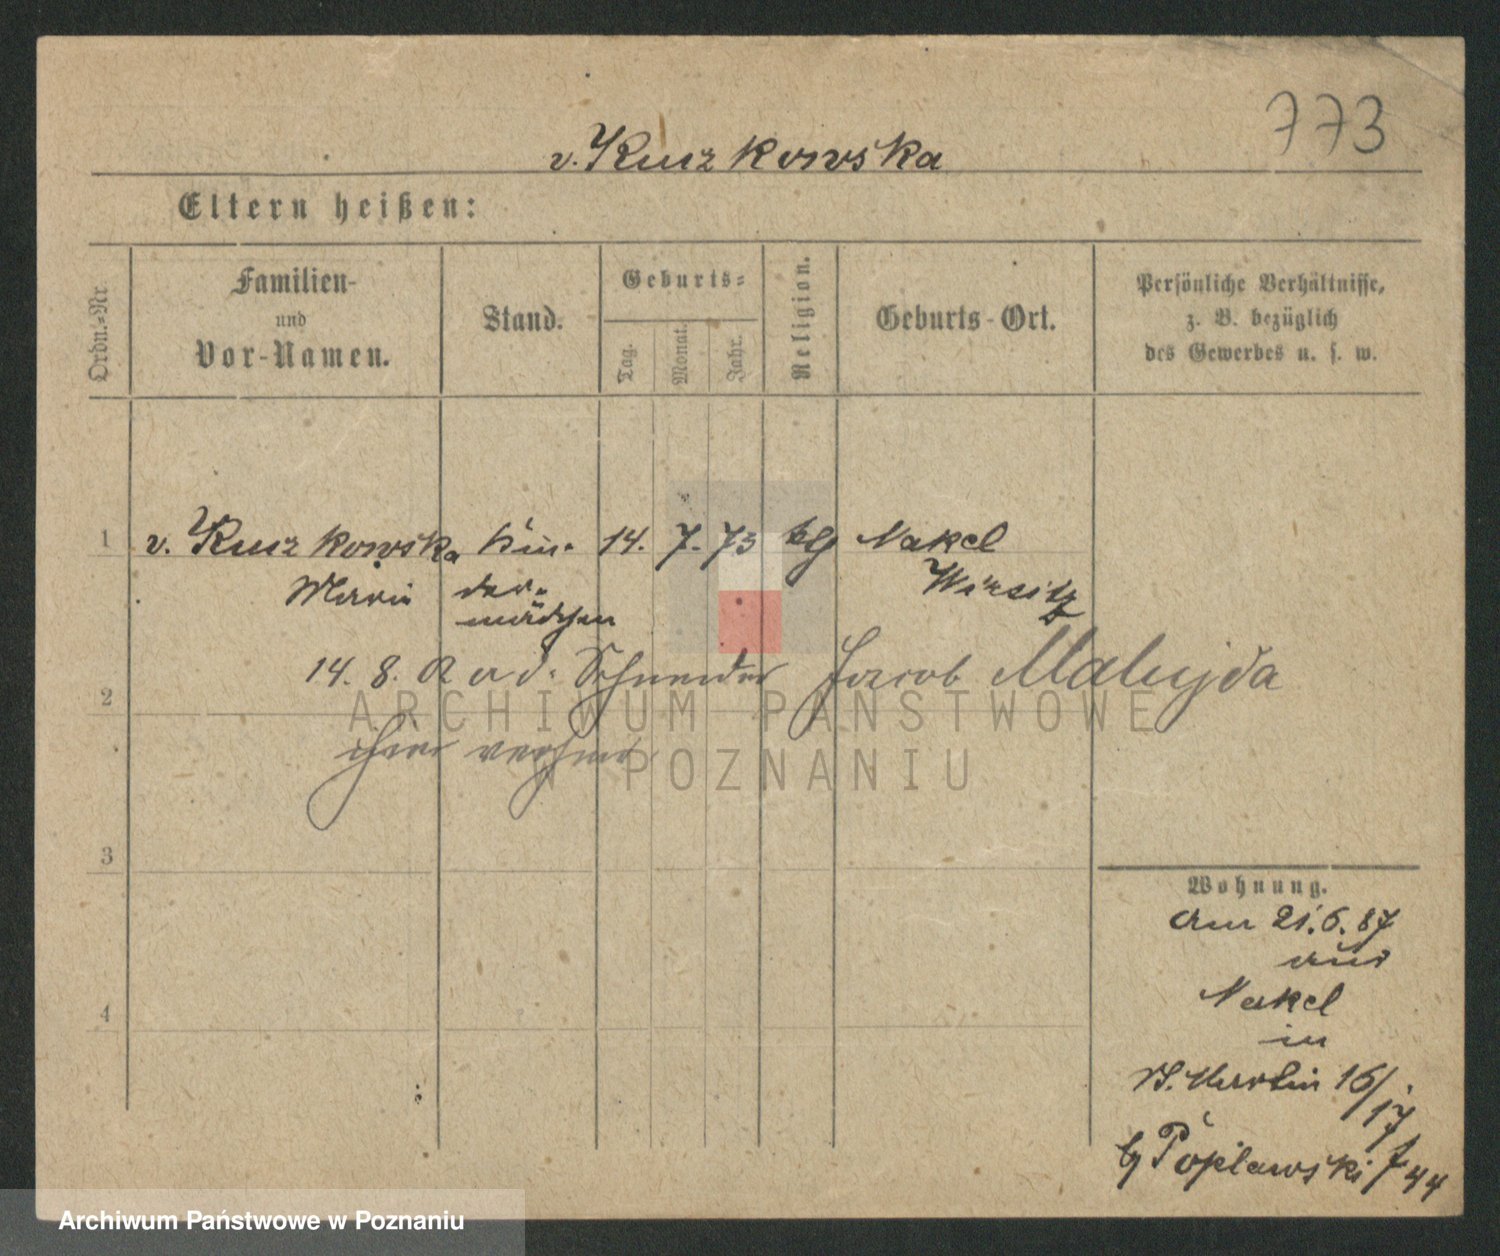 773
v. Kuszkowska
Eltern heißen:
Ordn.-Nr.
Familien-
und
Vor-Namen.
Stand.
Geburts-
Tag.
Monat.
Jahr.
Religion.
Geburts-Ort.
Persönliche Verhältnisse,
z. B. bezüglich
des Gewerbes u. s. w.
1 v. Kuszkowska Kin- 14. 7. 73 klg Nakel
Marie der- Wirsitz
mädchen
14. 8. Schneider Jacob Malujda
2
ARCHIWUM PAŃSTWOWE
W POZNANIU
3
Wohnung.
Am 21.6.87
aus
Nakel
4
in
St. Martin 16/17
b/ Poplawski f 44
Archiwum Państwowe w Poznaniu